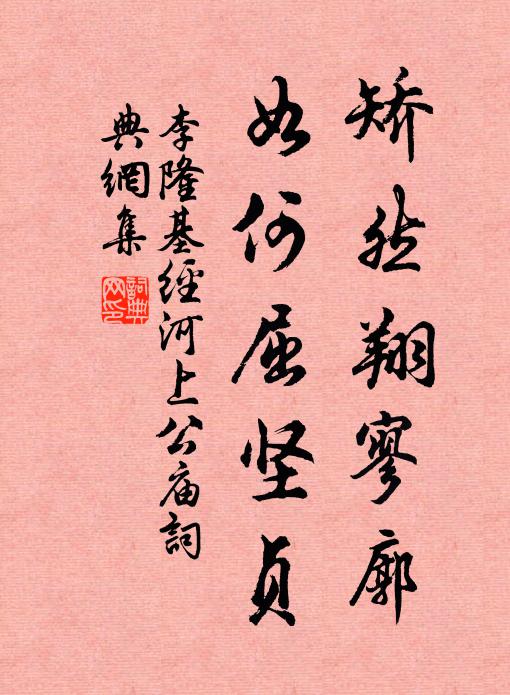 矫然翔寥廓
如何屈坚贞
李隆基經河上公庙詞
典網集
詞典网印